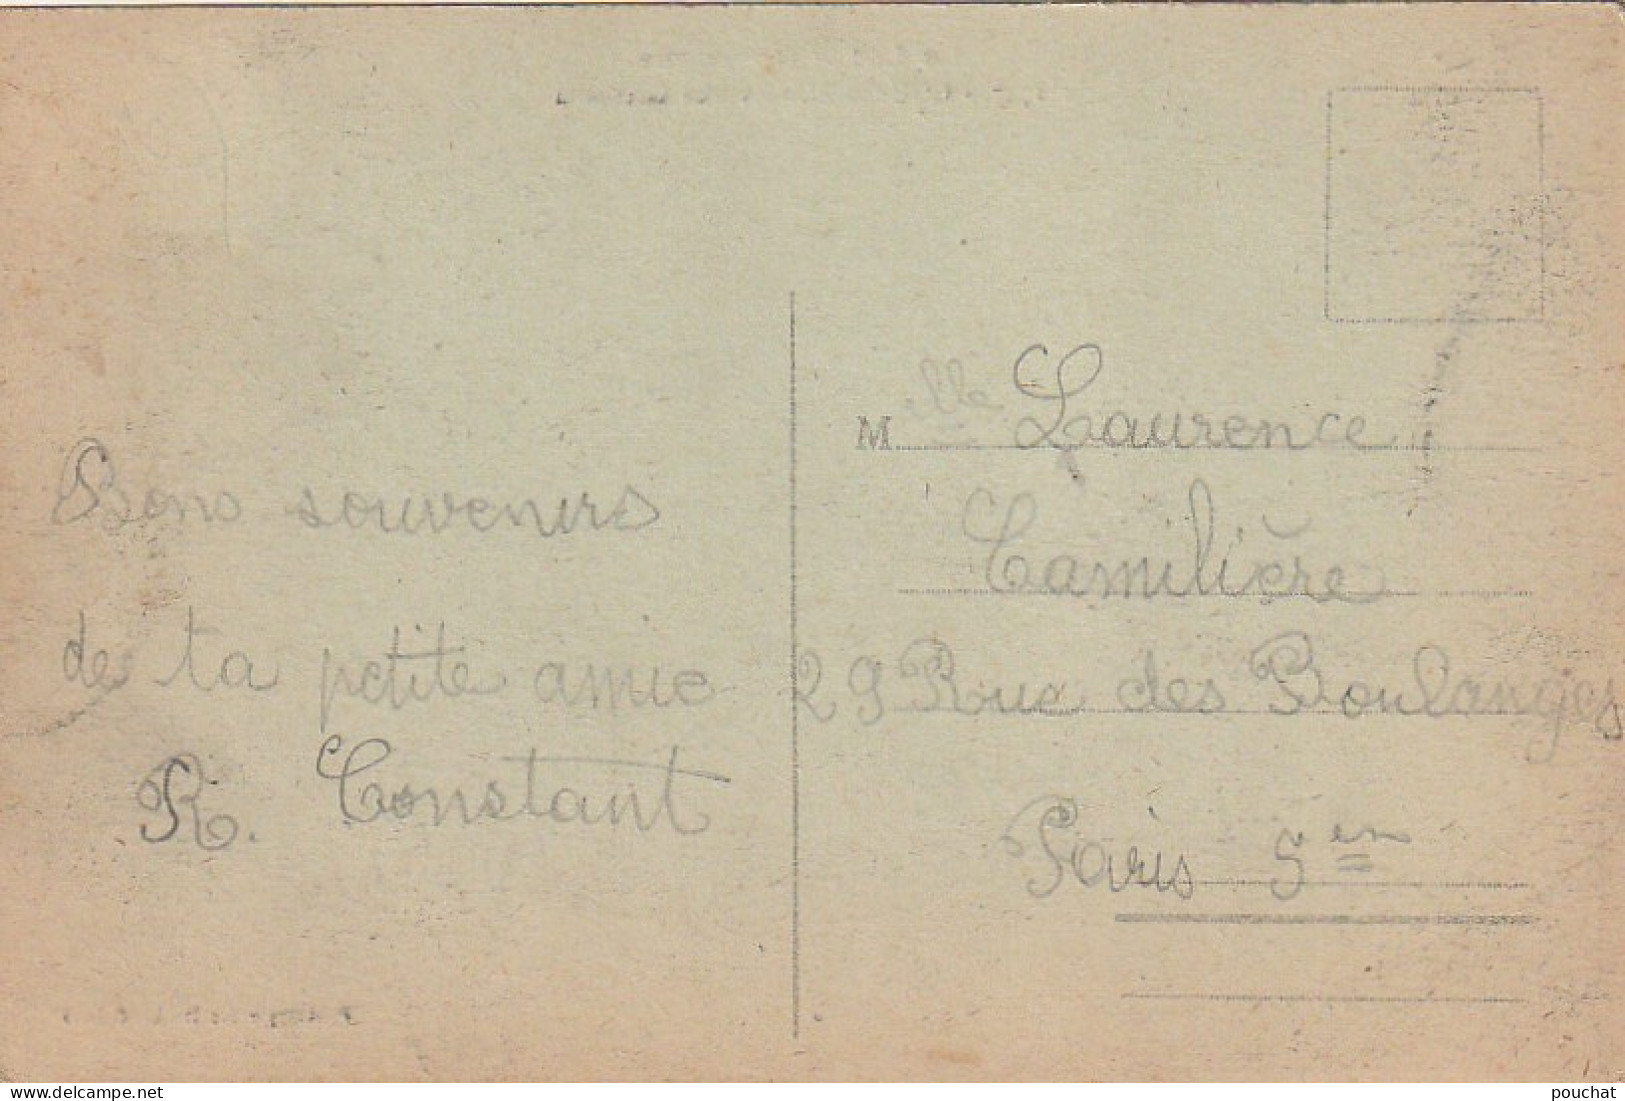 Bons souvenirs
de ta petite amie
R. Constant
Melle Laurence
Camilière
29 Rue des Boulanges
Paris 5em
www.delcampe.net
pouchat